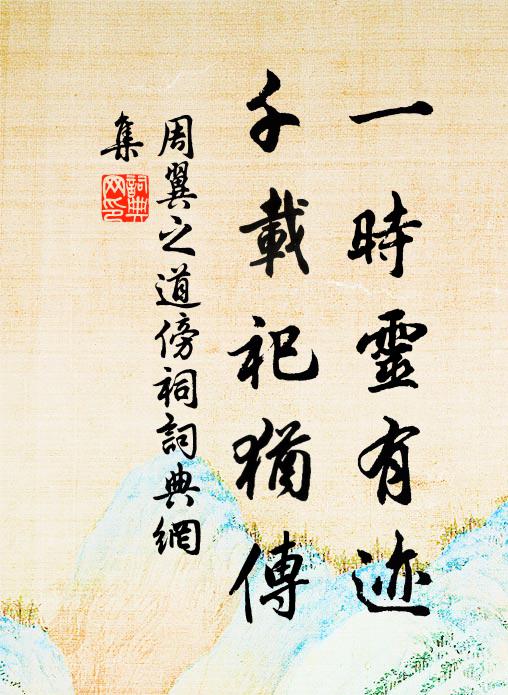 一時靈有迹
千載祀猶傳
周翼之道傍祠詞典網
集
詞典
网印